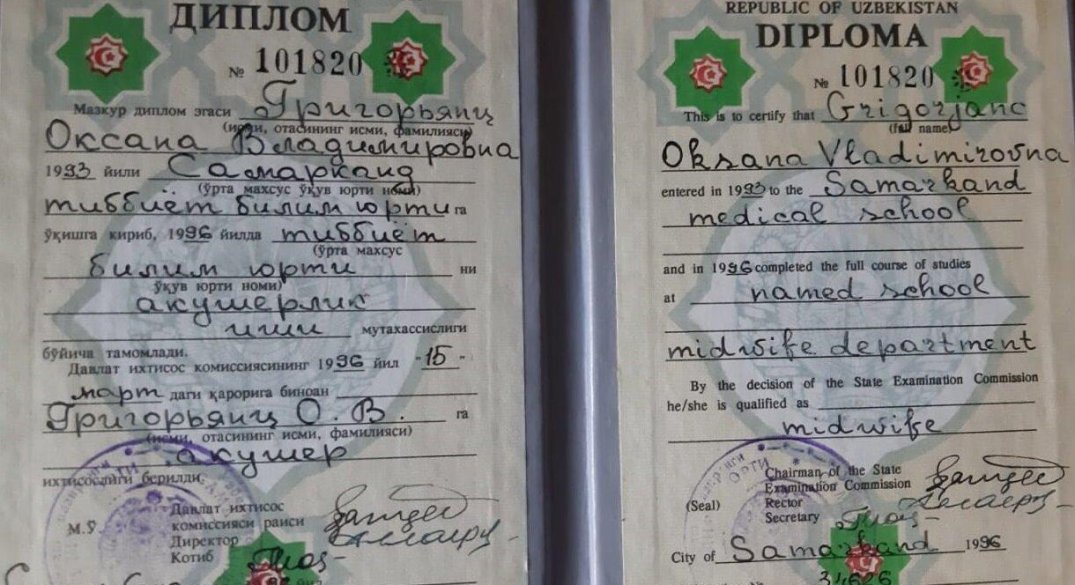 ДИПЛОМ
№ 101820
Мазкур диплом эгаси Григорьянц
(исми, отасининг исми, фамилияси)
Оксана Владимировна
1993 йили Самарканд
(ўрта махсус ўқув юрти номи)
тиббиёт билим юрти га
ўқишга кириб, 1996 йилда тиббиёт
(ўрта махсус
билим юрти ни
ўқув юрти номи)
акушерлик
иши мутахассислиги
бўйича тамомлади.
Давлат ихтисос комиссиясининг 1996 йил "15"
март даги қарорига биноан
Григорьянц О. В. га
(исми, отасининг исми, фамилияси)
акушер
ихтисослиги берилди.
Давлат ихтисос
М.Ў комиссияси раиси
Директор
Котиб
REPUBLIC OF UZBEKISTAN
DIPLOMA
№ 101820
This is to certify that Grigorjanc
(full name)
Oksana Vladimirovna
entered in 1993 to the Samarkand
medical school
and in 1996 completed the full course of studies
at named school
midwife department
By the decision of the State Examination Commission
he/she is qualified as
midwife
Chairman of the State
Examination Commission
(Seal) Rector
Secretary
City of Samarkand 1996
34626